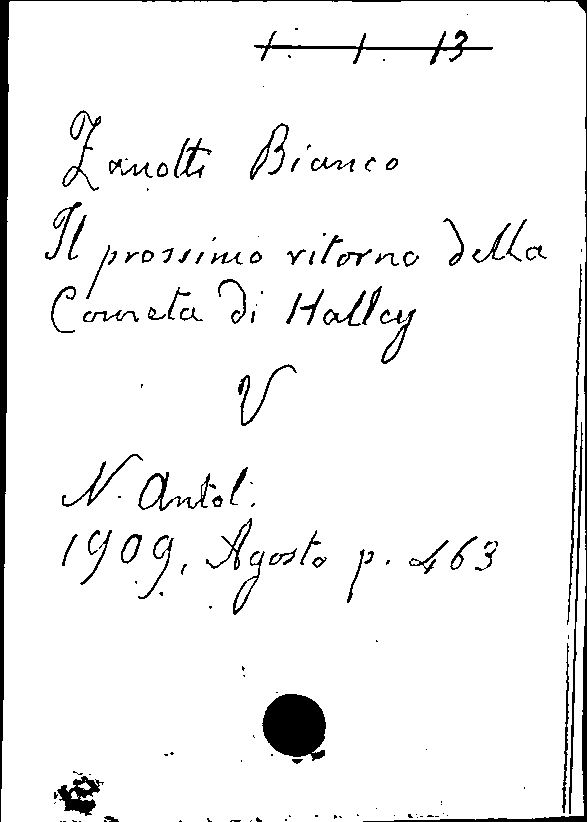 1. 1. 13
Zanotti Bianco
Il prossimo ritorno della
Cometa di Halley
V
N. Antol.
1909, Agosto p. 463